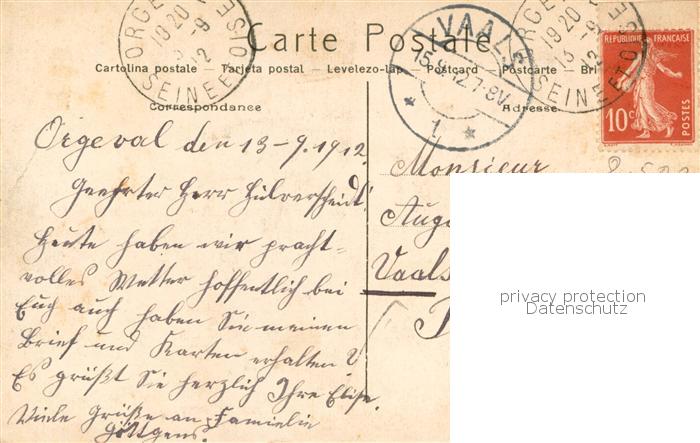 Carte Postale
Cartolina postale — Tarjeta postal — Levelezo-lap — Postcard — Postcarte — Bri
Correspondance
Adresse
ORGE
1920
13 -9
12
SEINE ET OISE
VAALS
15.9.12.7-8V.
1
ORGE
1920
13 -9
12
SEINE ET OISE
REPUBLIQUE FRANÇAISE
10c
POSTES
Orgeval den 13-9.1912.
Geehrter Herr Hülverscheidt!
Heute haben wir pracht-
volles Wetter hoffentlich bei
Euch auch haben Sie meinen
Brief und Karten erhalten?
Es grüßt Sie herzlich Ihre Elise.
Viele Grüße an Famielie
Göttgens.
Monsieur
Aug
Vaals
privacy protection
Datenschutz